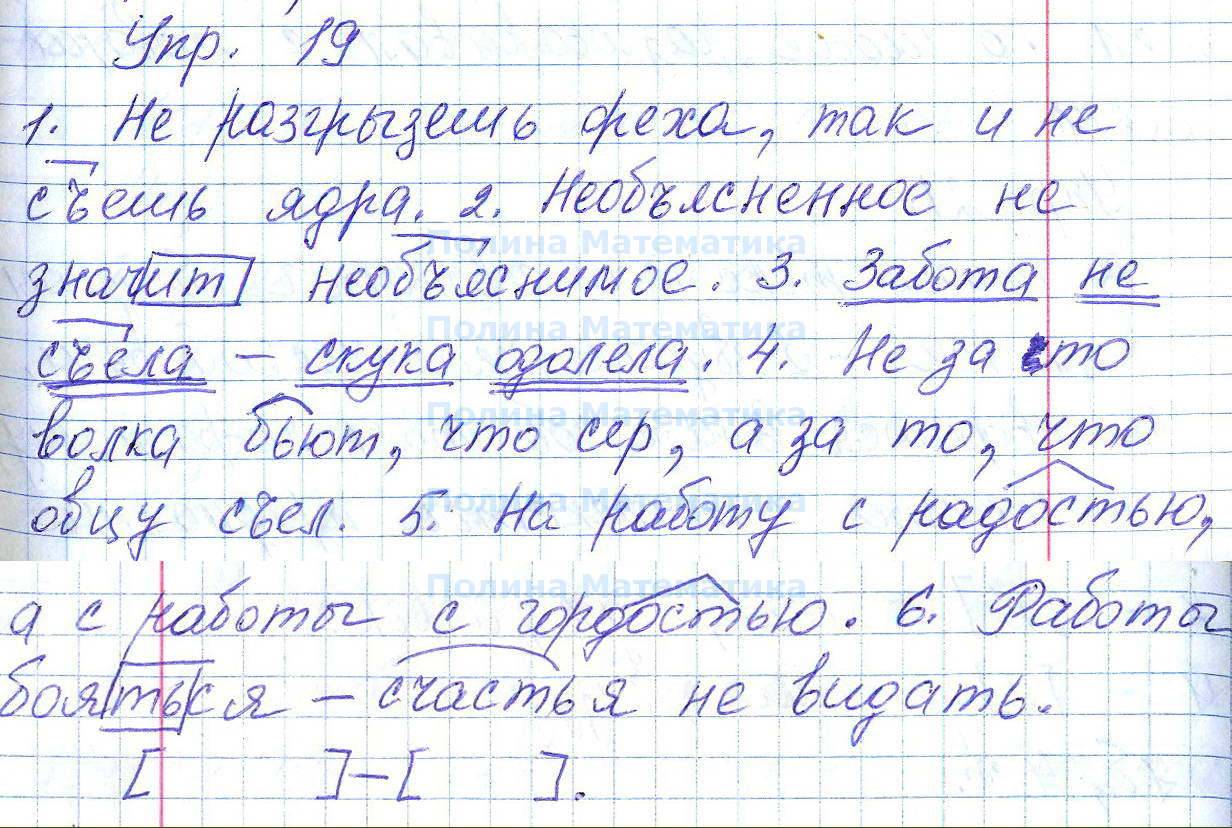 Упр. 19
1. Не разгрызешь ореха, так и не
съешь ядра. 2. Необъясненное не
Полина Математика
значит необъяснимое. 3. Забота не
Полина Математика
съела – скука одолела. 4. Не за то
Полина Математика
волка бьют, что сер, а за то, что
Полина Математика
овцу съел. 5. На работу с радостью,
Полина Математика
а с работы с гордостью. 6. Работы
бояться – счастья не видать.
[ ] – [ ].